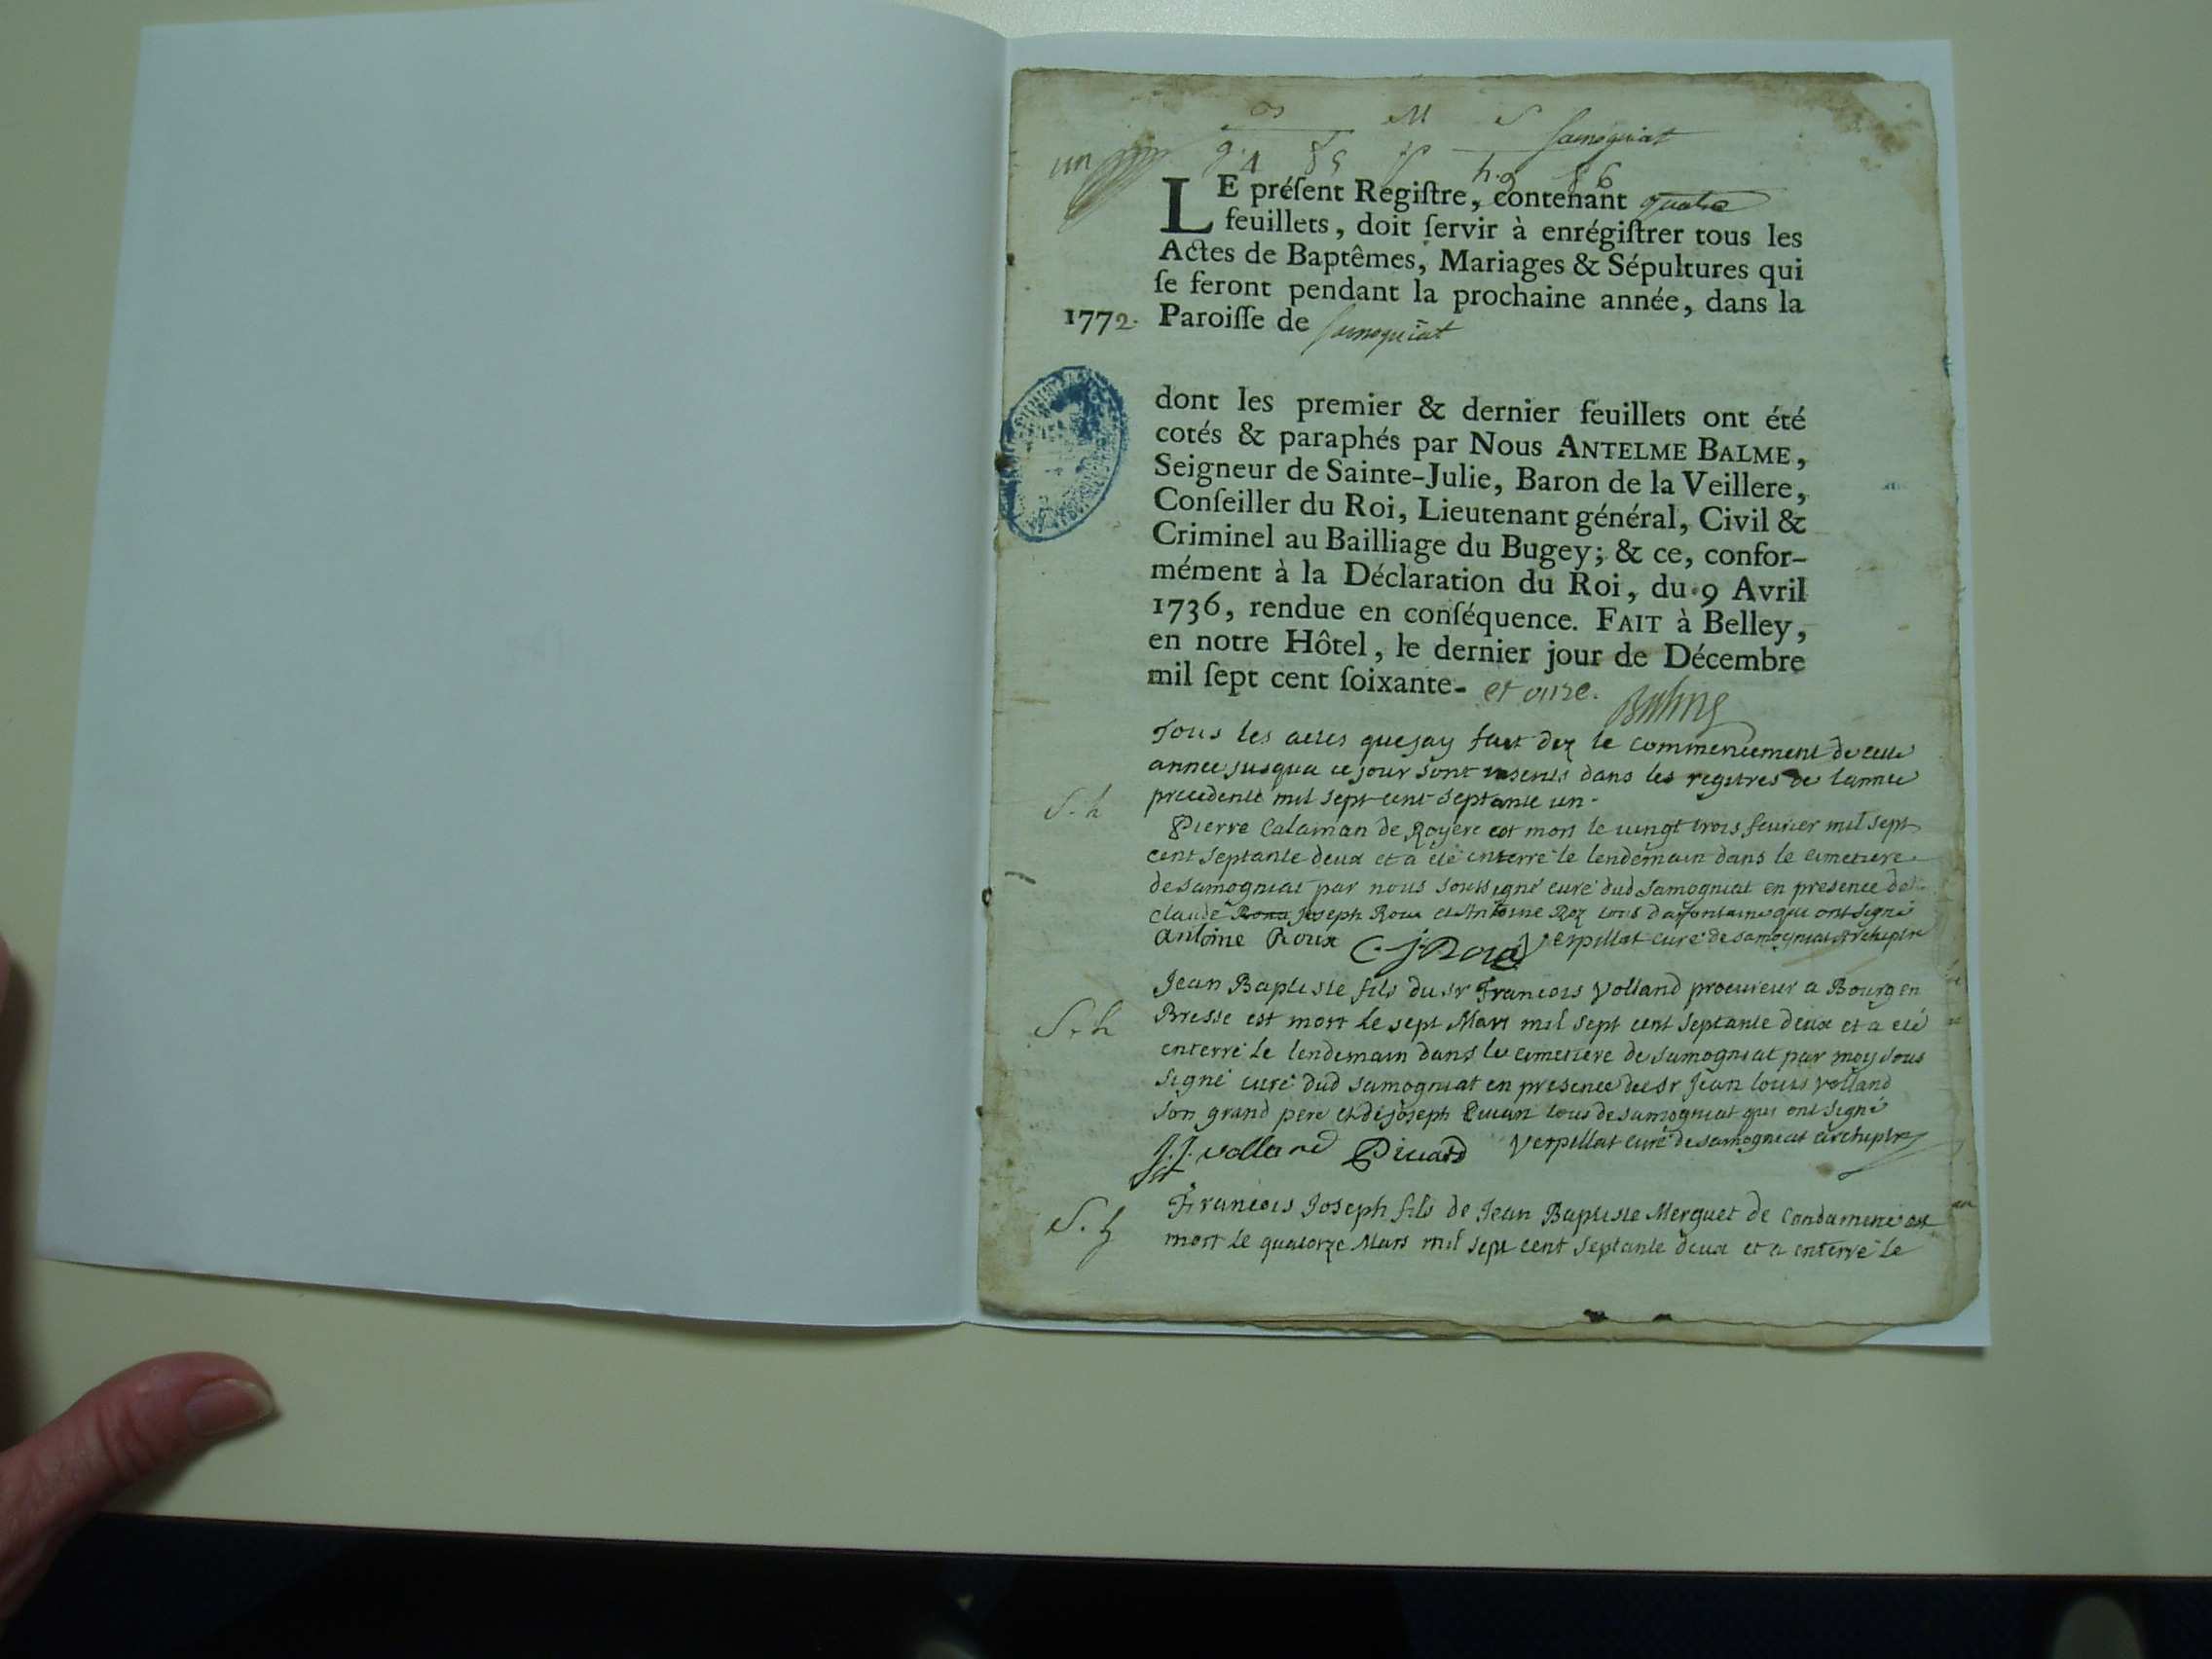 B M S Samogniat
un
LE préſent Regiſtre, contenant quatre
feuillets, doit ſervir à enrégiſtrer tous les
Actes de Baptêmes, Mariages & Sépultures qui
ſe feront pendant la prochaine année, dans la
1772. Paroiſſe de Samogniat
dont les premier & dernier feuillets ont été
cotés & paraphés par Nous ANTELME BALME,
Seigneur de Sainte-Julie, Baron de la Veillere,
Conſeiller du Roi, Lieutenant général, Civil &
Criminel au Bailliage du Bugey; & ce, confor-
mément à la Déclaration du Roi, du 9 Avril
1736, rendue en conſéquence. FAIT à Belley,
en notre Hôtel, le dernier jour de Décembre
mil ſept cent ſoixante- et onze. Balme
Tous les actes que jay fait dez le commencement de cette
annee jusqua ce jour sont inserés dans les registres de lannee
precedente mil sept cent septante un.
S. h
Pierre Calaman de Royere est mort le vingt trois fevrier mil sept
cent septante deux et a été enterré le lendemain dans le cimetiere
de Samogniat par nous soussigné curé dud Samogniat en presence de
claude Joseph Roux et Antoine Roz tous d'affontaine qui ont signé
antoine Roux C. j. Roux Verpillat curé de Samogniat archiptre
S. h
Jean Baptiste fils du sr Francois Volland procureur a Bourg en
Bresse est mort le sept Mars mil sept cent septante deux et a été
enterré le lendemain dans le cimetiere de Samogniat par moy sous
signé curé dud Samogniat en presence du sr Jean louis volland
son grand pere et de joseph tous de Samogniat qui ont signé
J. J. volland Picard Verpillat curé de Samogniat archiptre
S. h
Francois Joseph fils de Jean Baptiste Merguet de Condamine est
mort le quatorze Mars mil sept cent septante deux et a enterré le